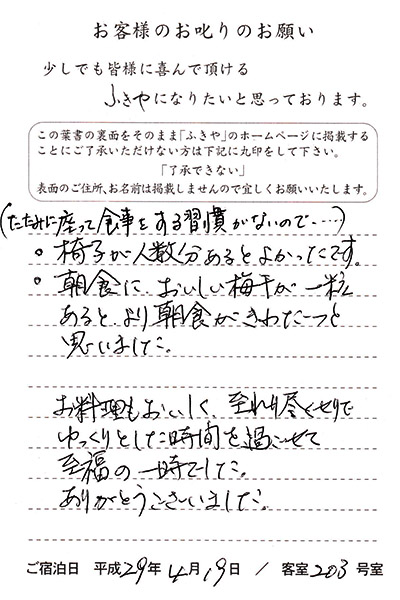 お客様のお叱りのお願い
少しでも皆様に喜んで頂ける
ふきやになりたいと思っております。
この葉書の裏面をそのまま「ふきや」のホームページに掲載する
ことにご了承いただけない方は下記に丸印をして下さい。
「了承できない」
表面のご住所、お名前は掲載しませんので宜しくお願いいたします。
(たたみに座って食事をする習慣がないので……)
○椅子が人数分あるとよかったです。
○朝食に、おいしい梅干が一粒
あると、より朝食がきわだつと
思いました。
お料理もおいしく、至れり尽くせりで
ゆっくりとした時間を過ごせて
至福の一時でした。
ありがとうございました。
ご宿泊日 平成29年4月19日 / 客室203号室